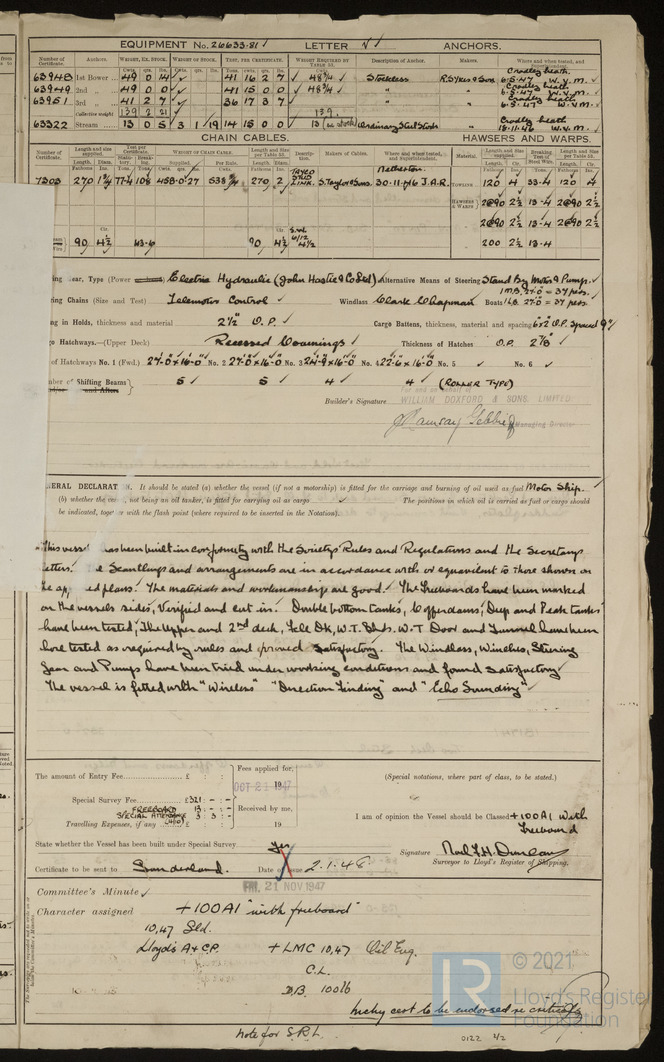 EQUIPMENT No. 26633.81 LETTER ANCHORS.
Number of Certificate. Anchors. WEIGHT, EX. STOCK. WEIGHT OF STOCK. TEST, PER CERTIFICATE. WEIGHT REQUIRED BY TABLE 53. Description of Anchor. Makers. Where and when tested, and Superintendent.
Cradley heath.
63948 1st Bower 49 0 14 41 16 2 7 48¾ Stockless R. Sykes & Son 6.5.47 W.Y.M.
Cradley heath
63949 2nd 49 0 0 41 15 0 0 48¾ " " 6.5.47 W.Y.M.
Cradley heath
63951 3rd 41 2 7 36 17 3 7 " " 6.5.47 W.Y.M.
Collective weight 139 2 21 139
63322 Stream 13 0 5 3 1 19 14 15 0 0 13 Ordinary Steel Stock Cradley heath 18.11.46 W.Y.M.
CHAIN CABLES. HAWSERS AND WARPS.
Number of Certificate. Length and size supplied. Test per Certificate. WEIGHT OF CHAIN CABLE. Length and Size per Table 53. Description. Makers of Cables. Where and when tested, and Superintendent. Material. Length and size supplied. Breaking Test of Steel Wire. Length and Size per Table 53.
Supplied. Per Rule. Length. Diam.
Fathoms Ins. Tons. Tons. Fathoms Ins.
Netherton.
7303 270 458-0-27 638 270 2 LINK. S. Taylor & Sons. 30-11-46 J.A.R. TOWLINE 120 4 33-4 120 4
HAWSERS & WARPS 2@90 2½ 13-4 2@90 2½
2@90 2½ 13-4 2@90 2½
90 4½ 43-6 90 4½ 200 2½ 13-4
ing Gear, Type (Power) Electric Hydraulic (John Hastie & Co Ltd) Alternative Means of Steering Stand By Motor & Pump.
ring Chains (Size and Test) Telemotor Control Windlass Clarke Chapman Boats
ng in Holds, thickness and material 2½" O.P. Cargo Battens, thickness, material and spacing 6x2 O.P. spaced 9"
o Hatchways.—(Upper Deck) Recessed Coamings Thickness of Hatches O.P. 2⅞"
of Hatchways No. 1 (Fwd.) 27-0x16-0 No. 2 27-0x16-0 No. 3 24-9x16-0 No. 4 22-6x16-0 No. 5 No. 6
ber of Shifting Beams 5 5 4 4 (ROLLER TYPE)
For and on behalf of
WILLIAM DOXFORD & SONS, LIMITED
Builder's Signature
Managing Director
ERAL DECLARAT N. It should be stated (a) whether the vessel (if not a motorship) is fitted for the carriage and burning of oil used as fuel Motor Ship.
(b) whether the ves , not being an oil tanker, is fitted for carrying oil as cargo The positions in which oil is carried as fuel or cargo should
be indicated, toge with the flash point (where required to be inserted in the Notation).
This vess has been built in conformity with the Societys Rules and Regulations and the Secretarys
etters. e Scantlings and arrangements are in accordance with or equivalent to those shown on
the ap ed plans. The materials and workmanship are good. The Freeboards have been marked
on the vessels sides, Verified and cut in. Double bottom tanks, Cofferdams, Deep and Peak tanks
have been tested, The Upper and 2nd deck, Fcle Dk, W.T. Bhds. W.T Door and Tunnel have been
hose tested as required by rules and proved satisfactory. The Windlass, Winches, Steering
Gear and Pumps have been tried under working conditions and found satisfactory
The vessel is fitted with "Wireless" "Direction Finding" and "Echo Sounding"
The amount of Entry Fee £ : :
Fees applied for,
OCT 21 1947
19
(Special notations, where part of class, to be stated.)
Special Survey Fee £321 : - : -
FREEBOARD 13 : - : -
SPECIAL ATTENDANCE 3 : 3 : -
Received by me,
Travelling Expenses, if any £ : : 19
I am of opinion the Vessel should be Classed +100A1 With
Freeboard
State whether the Vessel has been built under Special Survey Yes
Signature
Surveyor to Lloyd's Register of Shipping.
Certificate to be sent to Sunderland. Date of issue 2.1.48
FRI. 21 NOV 1947
Committee's Minute
Character assigned +100A1 "with freeboard"
10,47 Sld.
Lloyd's A & C.P. +LMC 10,47 Oil Eng.
C.L.
D.B. 100 lb
© 2021
Lloyd's Register
Foundation
Note for S.R.L.
0122 2/2